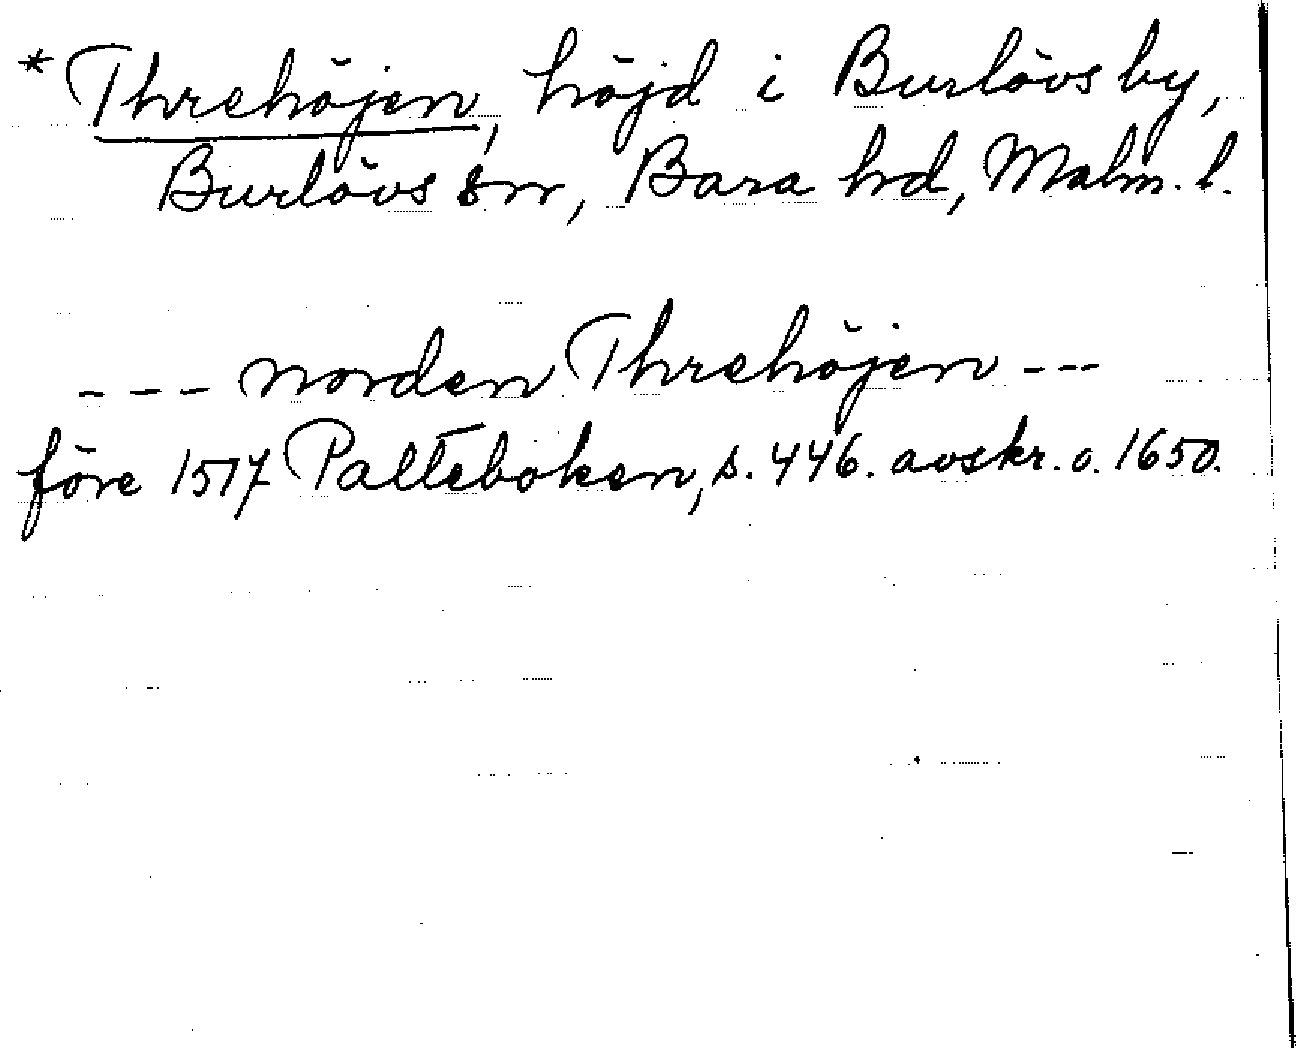 *Threhöjen, höjd i Burlövs by,
Burlövs sn, Bara hd, Malm. l.
--- norden Threhöjen ---
före 1517 Palteboken, s. 446. avskr. o. 1650.